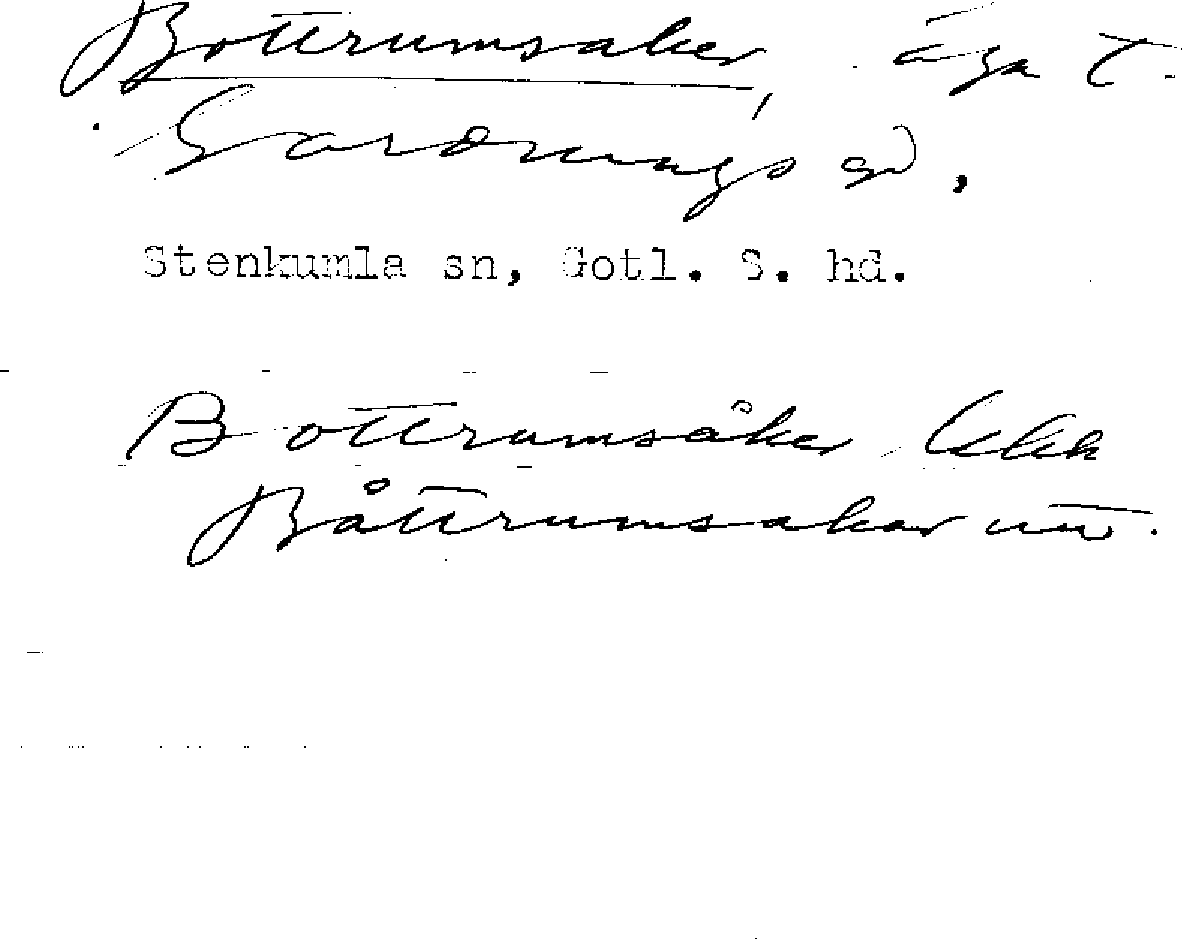 Bottrumsåker, äga t.
Gardrungs gd,
Stenkumla sn, Gotl. S. hd.
Bottrumsåker
Båttrumsaker